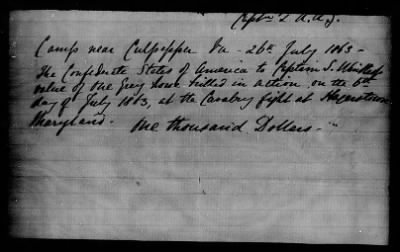 Capt & A.A.G.
Camp near Culpepper Va - 26th July 1863 -
The Confederate States of America to Captain S.
value of one Grey horse killed in action, on the 6th
day of July 1863, at the Cavalry fight at Hagerstown
Maryland. One thousand Dollars -